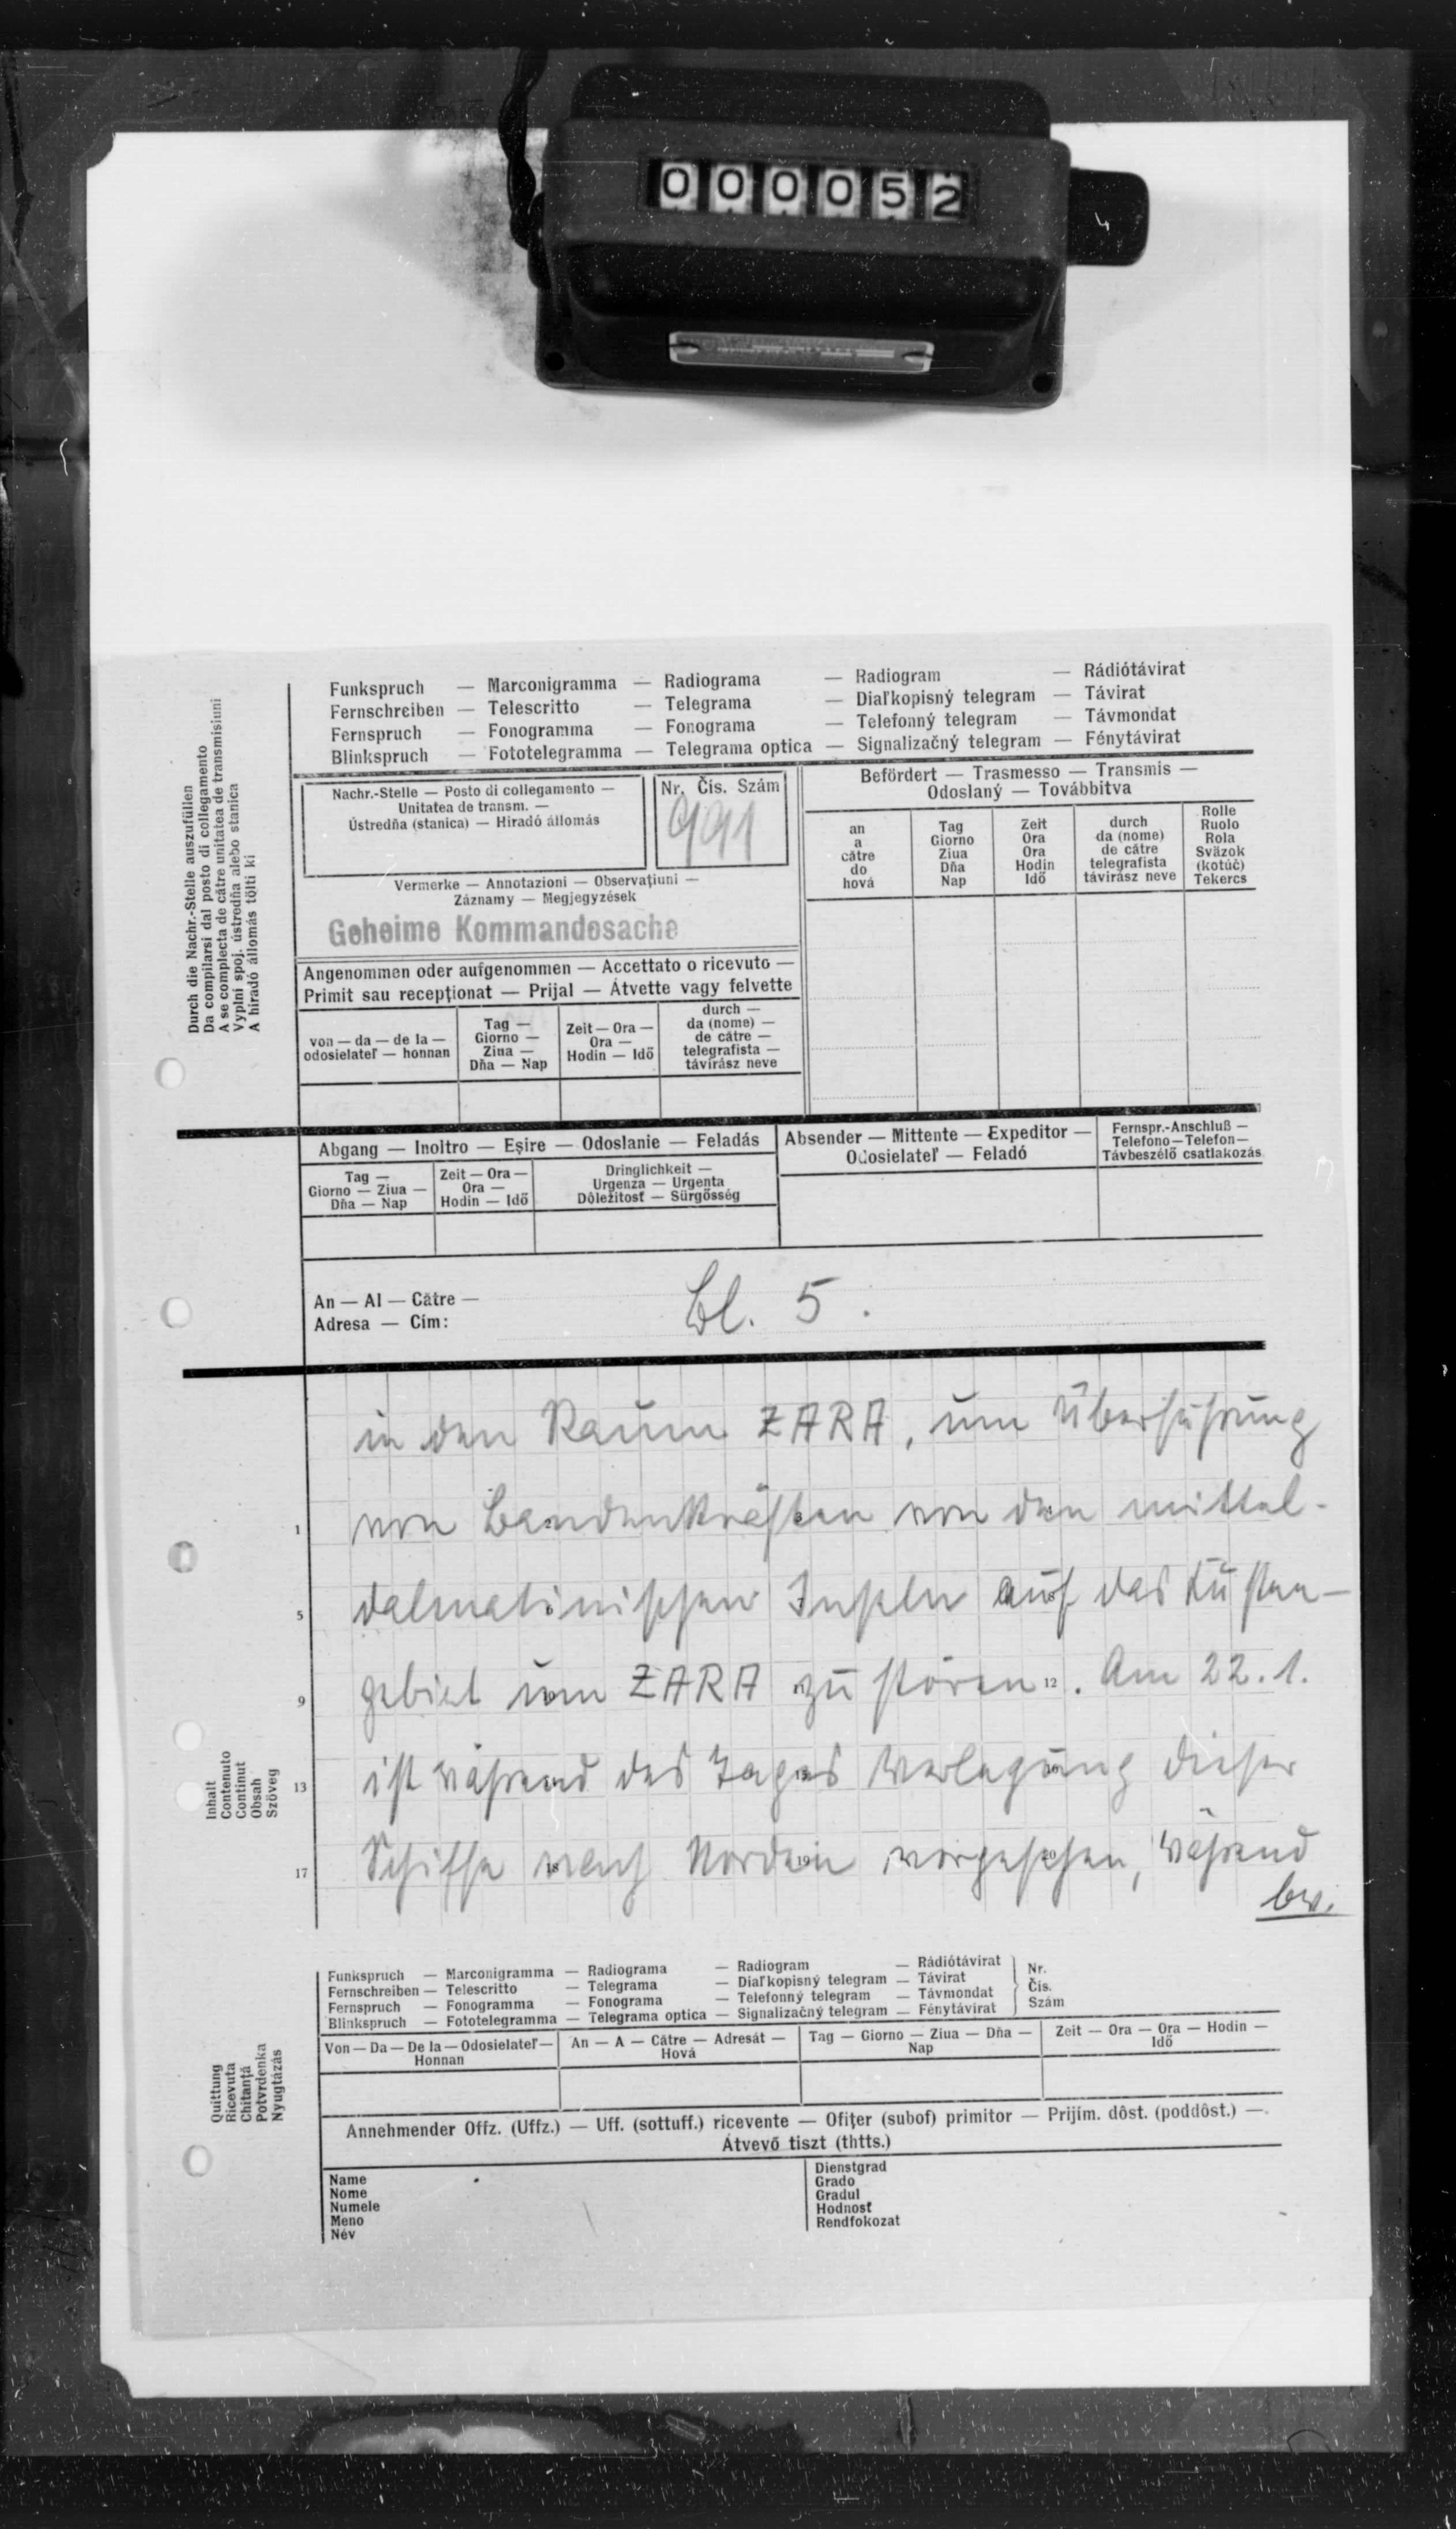 000052
Funkspruch — Marconigramma — Radiograma — Radiogram — Rádiótávirat
Fernschreiben — Telescritto — Telegrama — Diaľkopisný telegram — Távirat
Fernspruch — Fonogramma — Fonograma — Telefonný telegram — Távmondat
Blinkspruch — Fototelegramma — Telegrama optica — Signalizačný telegram — Fénytávirat
Durch die Nachr.-Stelle auszufüllen
Da compilarsi dal posto di collegamento
A se complecta de către unitatea de transmisiuni
Vyplní spoj. ústredňa alebo stanica
A hiradó állomás tölti ki
Nachr.-Stelle — Posto di collegamento —
Unitatea de transm. —
Ústredňa (stanica) — Hiradó állomás
Nr. Čís. Szám
991
Vermerke — Annotazioni — Observațiuni —
Záznamy — Megjegyzések
Geheime Kommandosache
Angenommen oder aufgenommen — Accettato o ricevuto —
Primit sau recepționat — Prijal — Átvette vagy felvette
von — da — de la —
odosielateľ — honnan
Tag —
Giorno —
Ziua —
Dňa — Nap
Zeit — Ora —
Ora —
Hodin — Idő
durch —
da (nome) —
de către —
telegrafista —
távirász neve
Befördert — Trasmesso — Transmis —
Odoslaný — Továbbitva
an
a
către
do
hová
Tag
Giorno
Ziua
Dňa
Nap
Zeit
Ora
Ora
Hodin
Idő
durch
da (nome)
de către
telegrafista
távirász neve
Rolle
Ruolo
Rola
Sväzok
(kotúč)
Tekercs
Abgang — Inoltro — Eşire — Odoslanie — Feladás
Tag —
Giorno — Ziua —
Dňa — Nap
Zeit — Ora —
Ora —
Hodin — Idő
Dringlichkeit —
Urgenza — Urgenta
Dôležitosť — Sürgősség
Absender — Mittente — Expeditor —
Odosielateľ — Feladó
Fernspr.-Anschluß —
Telefono — Telefon —
Távbeszélő csatlakozás
An — Al — Către —
Adresa — Cím:
Bl. 5.
in den Raum ZARA, um Überführung
1 von Bandenkräften von den mittel-
5 dalmatinischen Inseln auf das Küsten-
9 gebiet um ZARA zu stören 12 . Am 22.1.
13 ist während des Tages Verlegung dieser
17 Schiffe nach Norden vorgesehen, während
18 19 20
bw.
Inhalt
Contenuto
Continut
Obsah
Szöveg
Funkspruch — Marconigramma — Radiograma — Radiogram — Rádiótávirat
Fernschreiben — Telescritto — Telegrama — Diaľkopisný telegram — Távirat
Fernspruch — Fonogramma — Fonograma — Telefonný telegram — Távmondat
Blinkspruch — Fototelegramma — Telegrama optica — Signalizačný telegram — Fénytávirat
Nr.
Čís.
Szám
Von — Da — De la — Odosielateľ —
Honnan
An — A — Către — Adresát —
Hová
Tag — Giorno — Ziua — Dňa —
Nap
Zeit — Ora — Ora — Hodin —
Idő
Quittung
Ricevuta
Chitanță
Potvrdenka
Nyugtázás
Annehmender Offz. (Uffz.) — Uff. (sottuff.) ricevente — Ofițer (subof) primitor — Prijím. dôst. (poddôst.) —
Átvevő tiszt (thtts.)
Name
Nome
Numele
Meno
Név
Dienstgrad
Grado
Gradul
Hodnosť
Rendfokozat